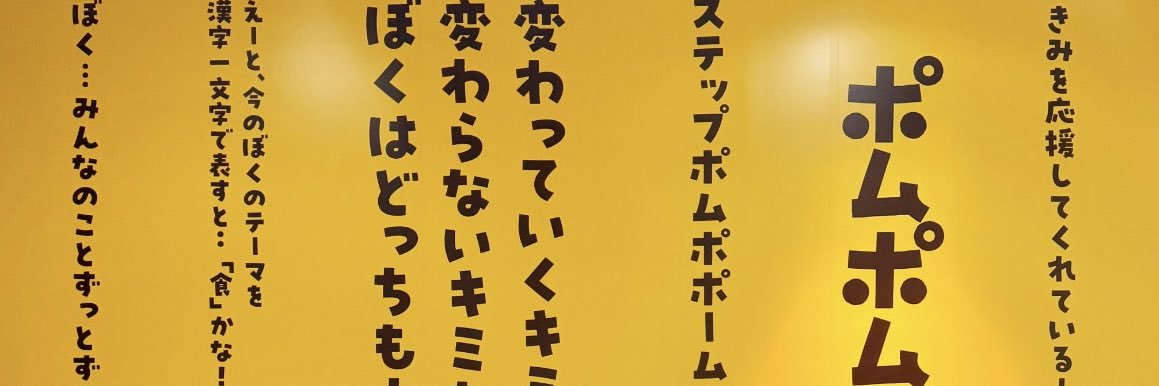 きみを応援してくれている!
ポムポム
ステップポムポポーム
変わっていくキミ
変わらないキミも
ぼくはどっちも
えーと、今のぼくのテーマを
漢字一文字で表すと…「食」かな!
ぼく…みんなのことずっとず